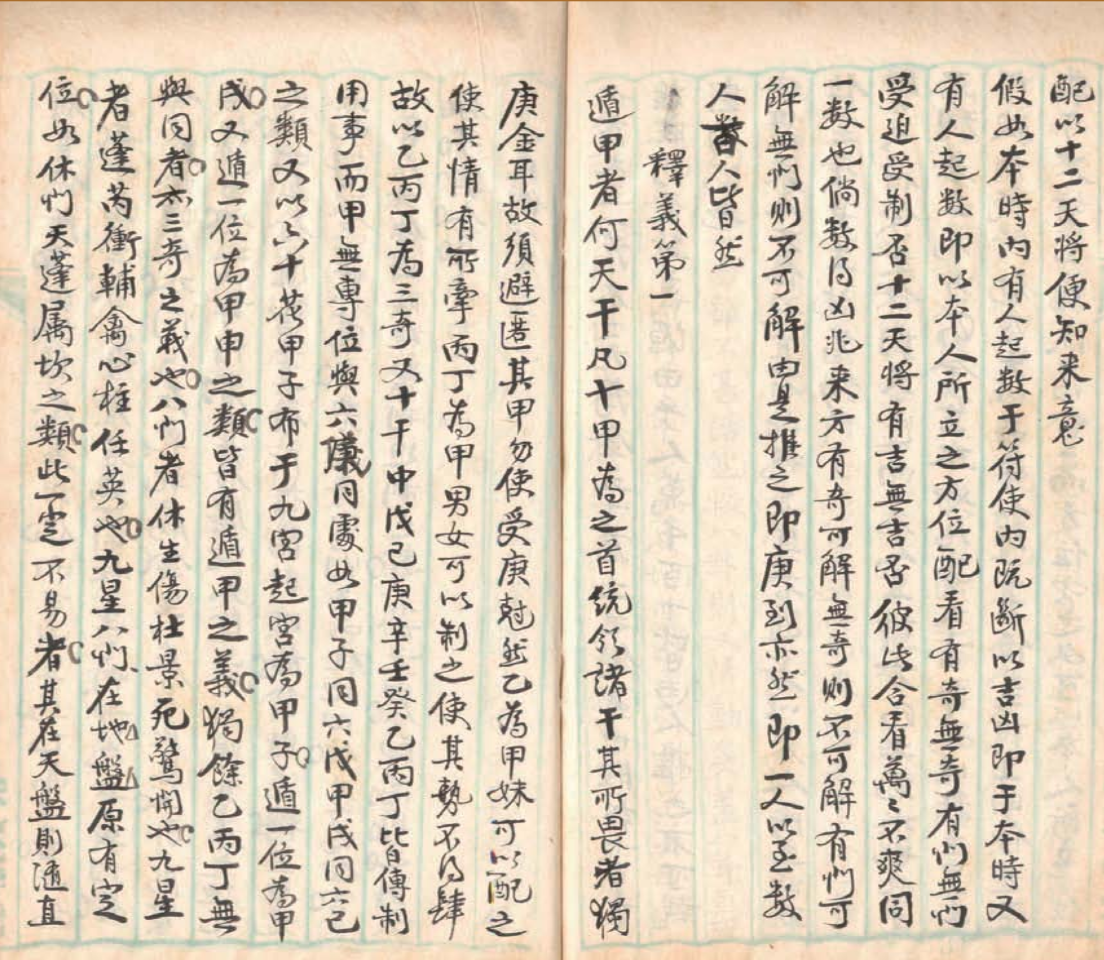 配以十二天将便知来意
假如本時内有人起数于符使内既断以吉凶即于本時又
有人起数即以本人所立之方位配看有奇無奇有们無们
受迫受制否十二天将有吉無吉否彼此合看萬〻不爽同
一数也倘数得凶兆来方有奇可解無奇則不可解有们可
解無们則不可解由是推之即庚到亦然即一人以至数
人人皆然
釋義第一
遁甲者何天干凡十甲為之首统领諸干其所畏者獨
庚金耳故須避匿其甲勿使受庚尅然乙為甲妹可以配之
使其情有所牽丙丁為甲男女可以制之使其勢不得肆
故以乙丙丁為三奇又十干中戊己庚辛壬癸乙丙丁皆傳制
用事而甲無專位與六議同處如甲子同六戊甲戌同六己
之類又以六十花甲子布于九宮起宮為甲子遁一位為甲
戌又遁一位為甲申之類皆有遁甲之義獨餘乙丙丁無
與同者亦三奇之義也八们者休生傷杜景死驚開也九星
者蓬芮衝輔禽心柱任英也九星八们在地盤原有定
位如休们天蓬属坎之類此一定不易者其在天盤則随直